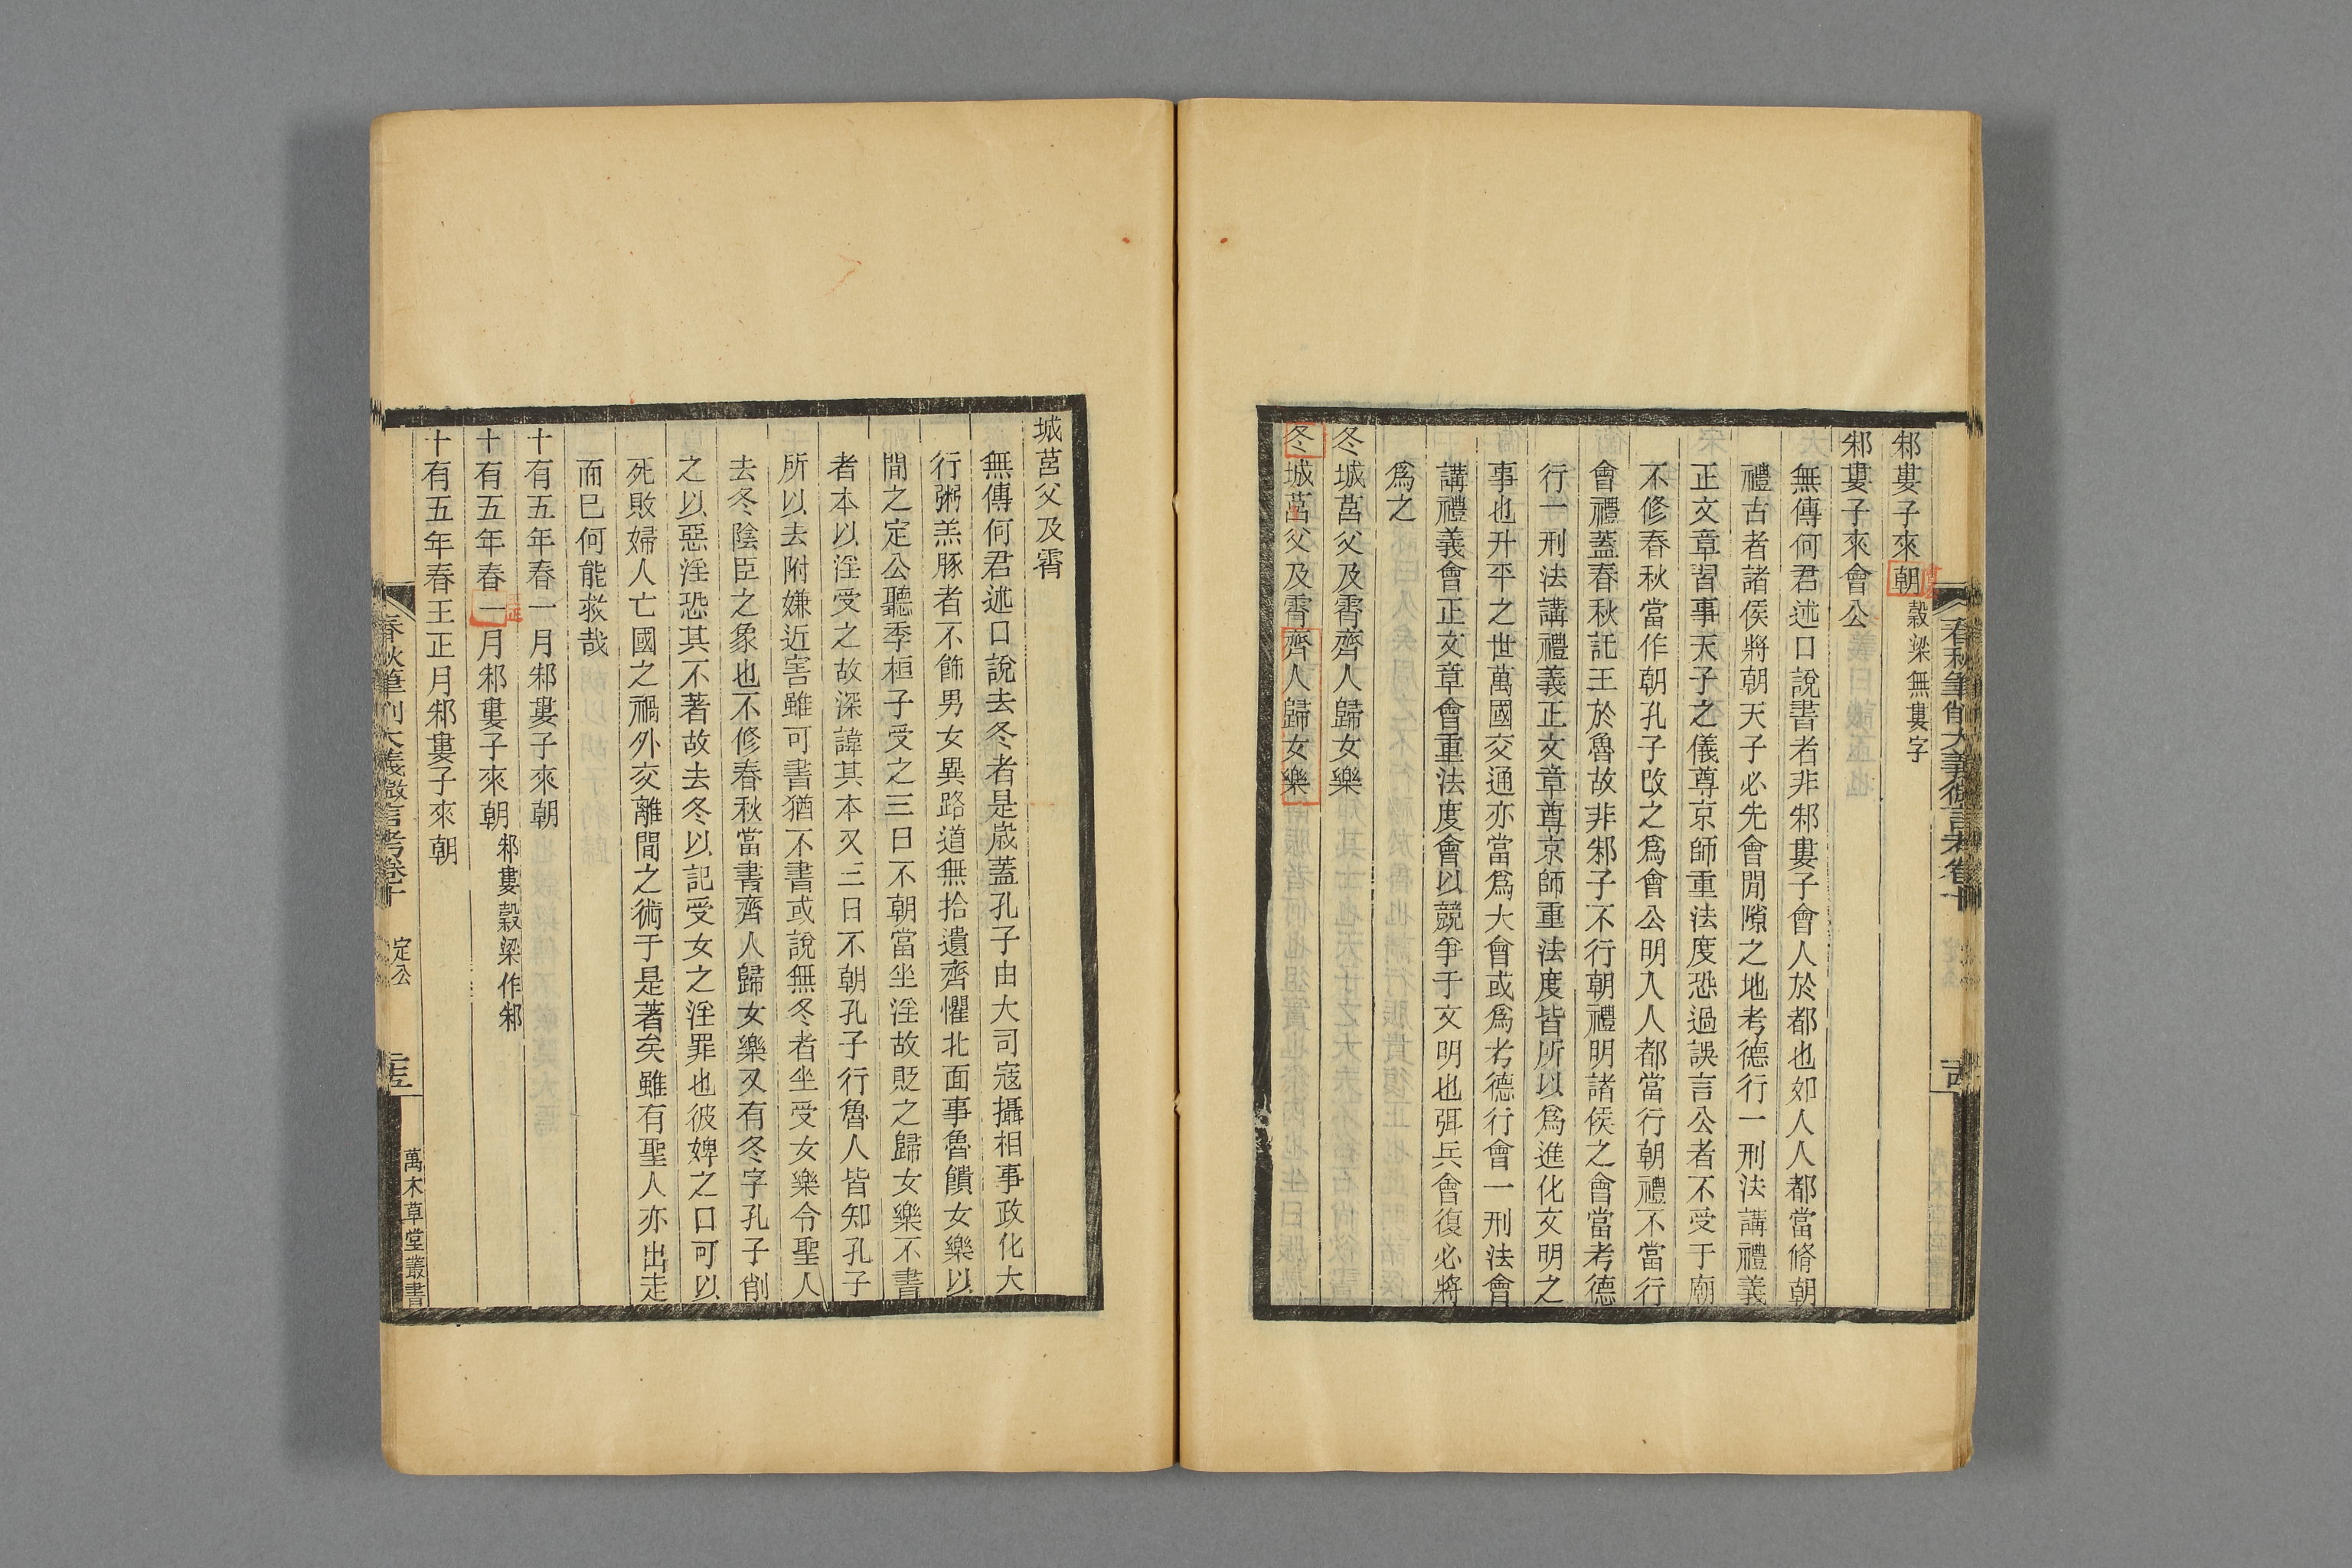 邾婁子來朝穀梁無婁字
邾婁子來會公
無傳何君述口說書者非邾婁子會人於都也如人人都當脩朝
禮古者諸侯將朝天子必先會閒隙之地考德行一刑法講禮義
正文章習事天子之儀尊京師重法度恐過誤言公者不受于廟
不修春秋當作朝孔子改之爲會公明入人都當行朝禮不當行
會禮蓋春秋託王於魯故非邾子不行朝禮明諸侯之會當考德
行一刑法講禮義正文章尊京師重法度皆所以爲進化文明之
事也升平之世萬國交通亦當爲大會或爲考德行會一刑法會
講禮義會正文章會重法度會以競爭于文明也弭兵會復必將
爲之
冬城莒父及霄齊人歸女樂
冬城莒父及霄齊人歸女樂
城莒父及霄
無傳何君述口說去冬者是歲蓋孔子由大司寇攝相事政化大
行粥羔豚者不飾男女異路道無拾遺齊懼北面事魯饋女樂以
閒之定公聽季桓子受之三日不朝當坐淫故貶之歸女樂不書
者本以淫受之故深諱其本又三日不朝孔子行魯人皆知孔子
所以去附嫌近害雖可書猶不書或說無冬者坐受女樂令聖人
去冬陰臣之象也不修春秋當書齊人歸女樂又有冬字孔子削
之以惡淫恐其不著故去冬以記受女之淫罪也彼婢之口可以
死敗婦人亡國之禍外交離間之術于是著矣雖有聖人亦出走
而已何能救哉
十有五年春一月邾婁子來朝
十有五年春一月邾婁子來朝邾婁穀梁作邾
正
十有五年春王正月邾婁子來朝
春秋筆削大義微言考卷十 定公
萬木草堂叢書